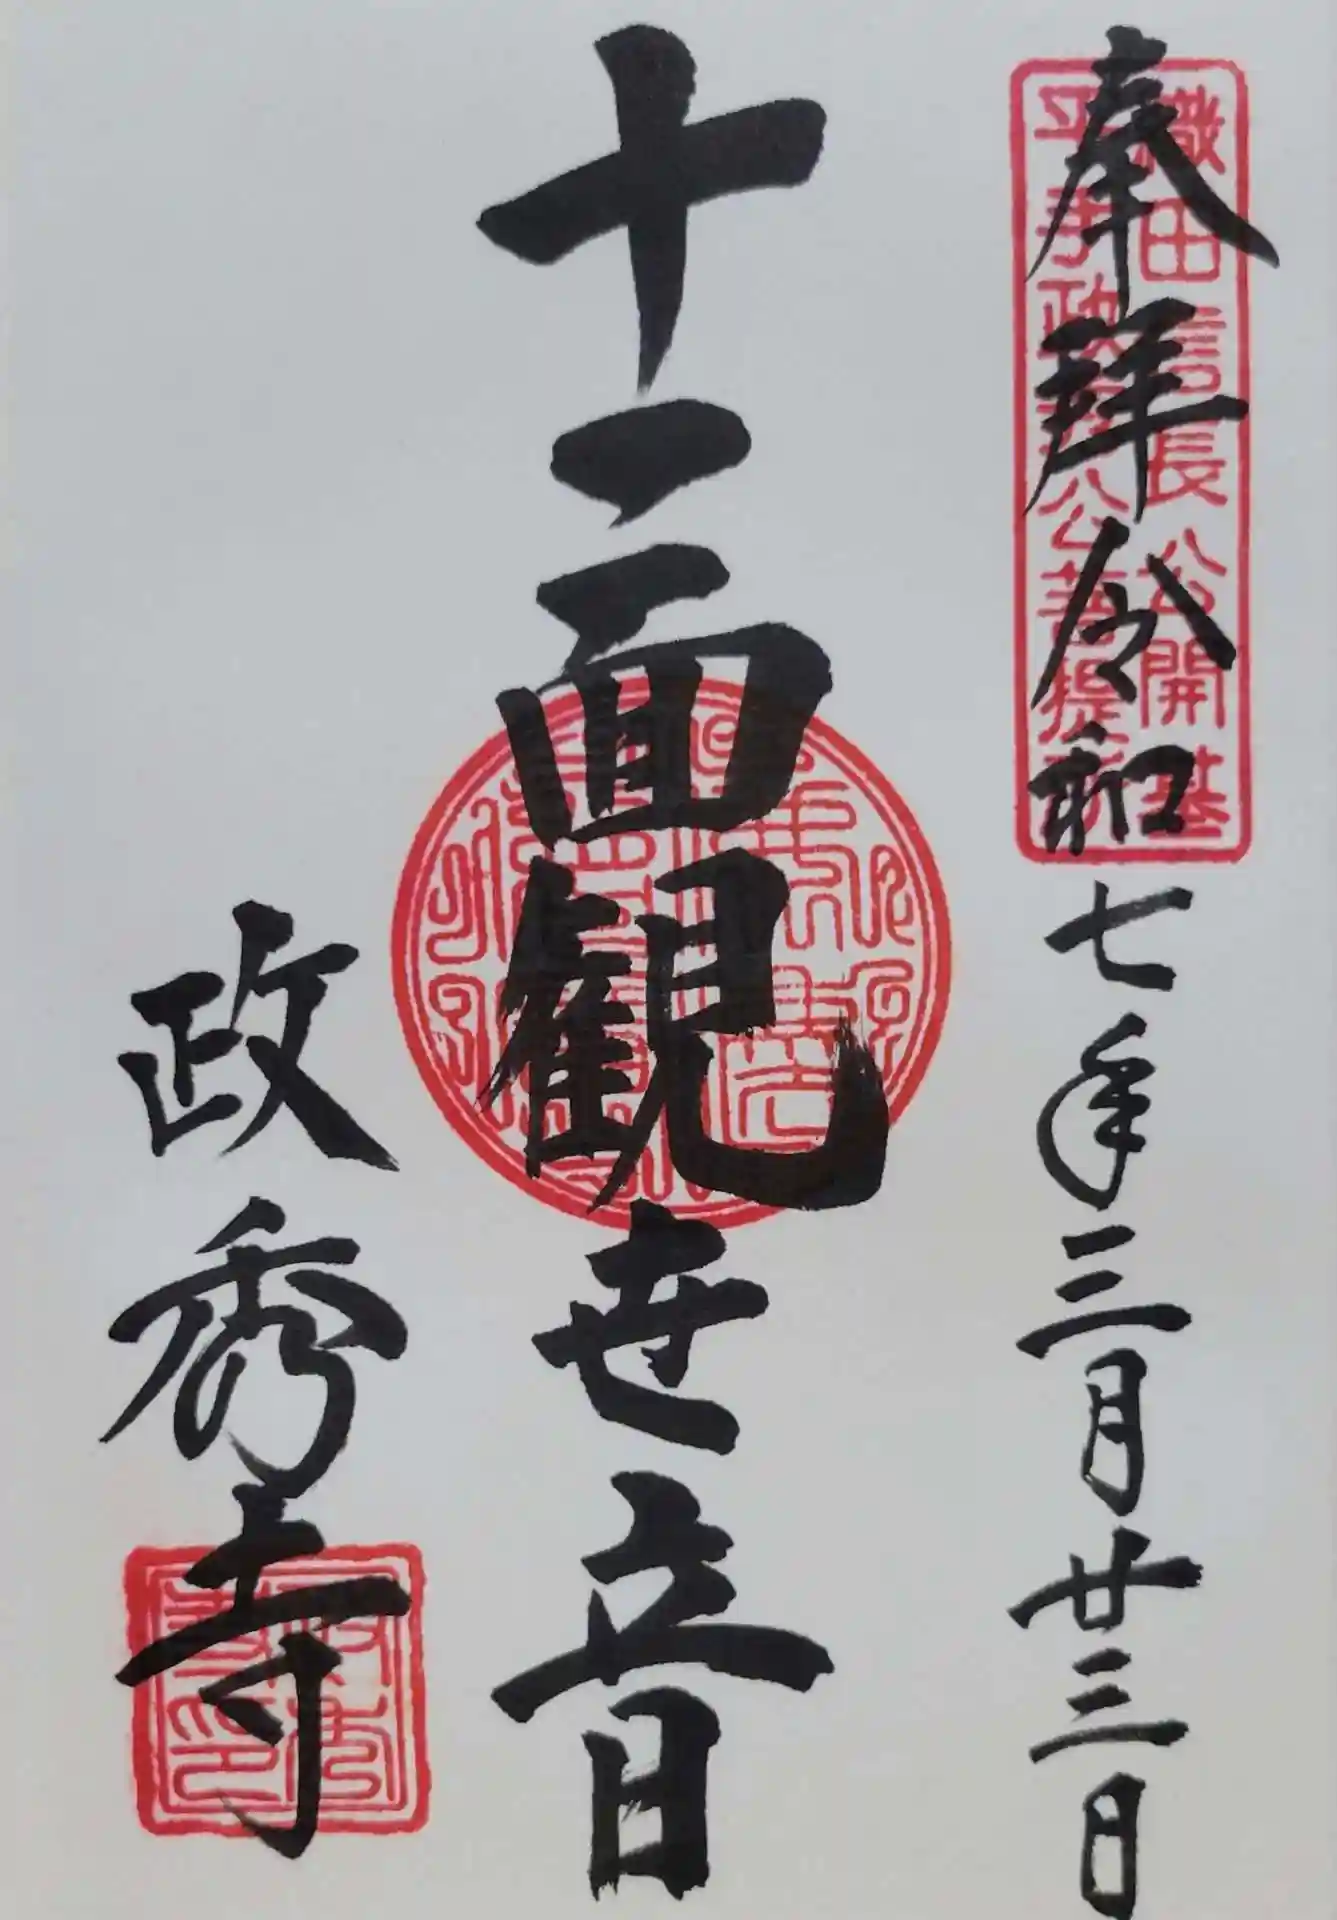 奉拝 令和七年三月廿三日
織田信長公開基
平手政秀公菩提所
十一面観世音
政秀寺